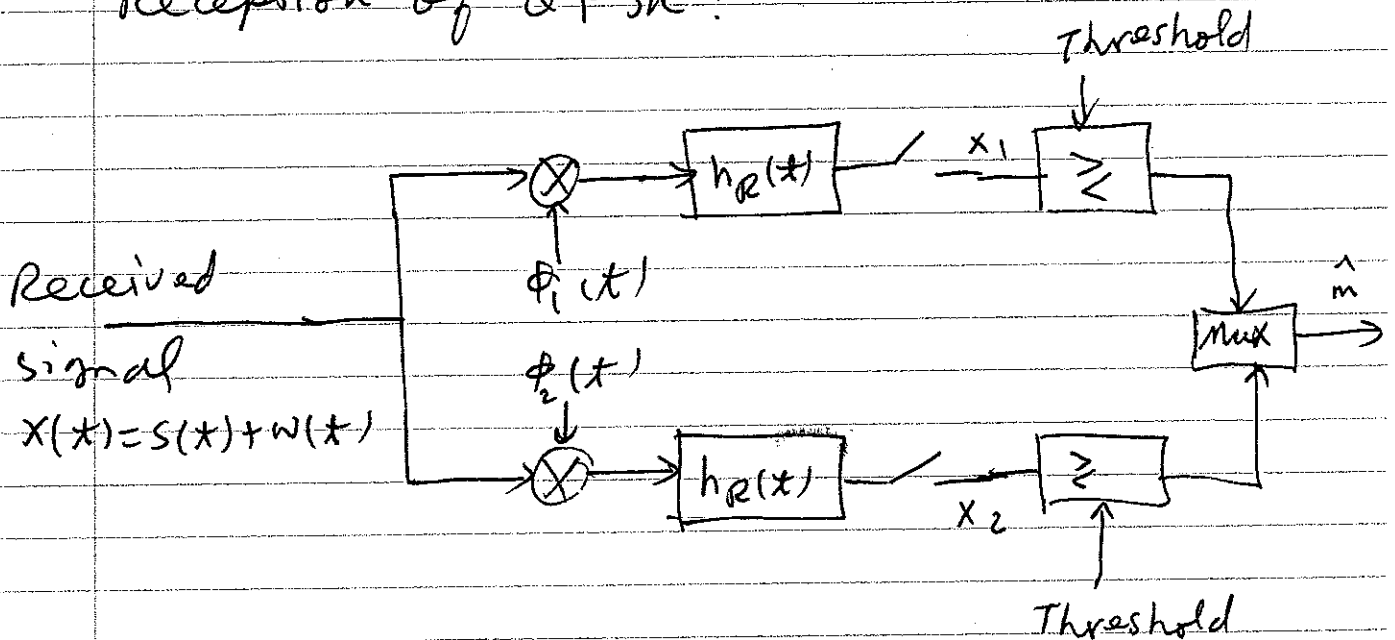 Reception of QPSK:
Threshold
⊗ h_R(t) x_1 ≷
Φ_1(t)
Received
signal
X(t)=S(t)+W(t)
Φ_2(t)
⊗ h_R(t) x_2 ≷
Mux m̂
Threshold